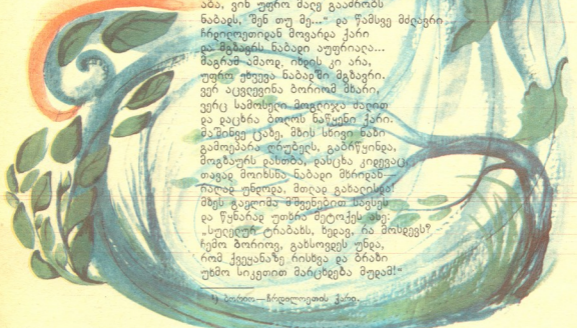 აბა, ვინ უფრო მალე გააძრობს
ნაბადს, შენ თუ მე..." და წამსვე მძლავრი
ჩრდილოეთიდან მოვარდა ქარი
და მგზავრს ნაბადი აუფრიალა...
მაგრამ ამაოდ, იხდის კი არა,
უფრო ეხვევა ნაბადში მგზავრი.
ვერ აცვლევინა ბორიომ მხარი,
ვერც სამოსელი მოგლიჯა ძალით
და დაცხრა ბოლოს ნაწყენი ქარი.
მაშინვე ცაზე, მზის სხივი ნაზი
გამოეპარა ღრუბელს, გაბრწყინდა,
მოგზაურს დასთბა, დასცხა კიდევაც,
თავად მოიხსნა ნაბადი მხრიდან—
რაღად უნდოდა, მთლად გახალისდა!
მზეს გაეღიმა მშვენებით სავსეს
და წყნარად უთხრა მეტოქეს ასე:
„სულელურ ტრაბახს, ხედავ, რა მოსდევს?
ჩემო ბორიოვ, გახსოვდეს უნდა,
რომ ქვეყანაზე რისხვა და ბრაზი
უხმო სიკეთით მარცხდება მუდამ!"
ბორიო—ჩრდილოეთის ქარი.